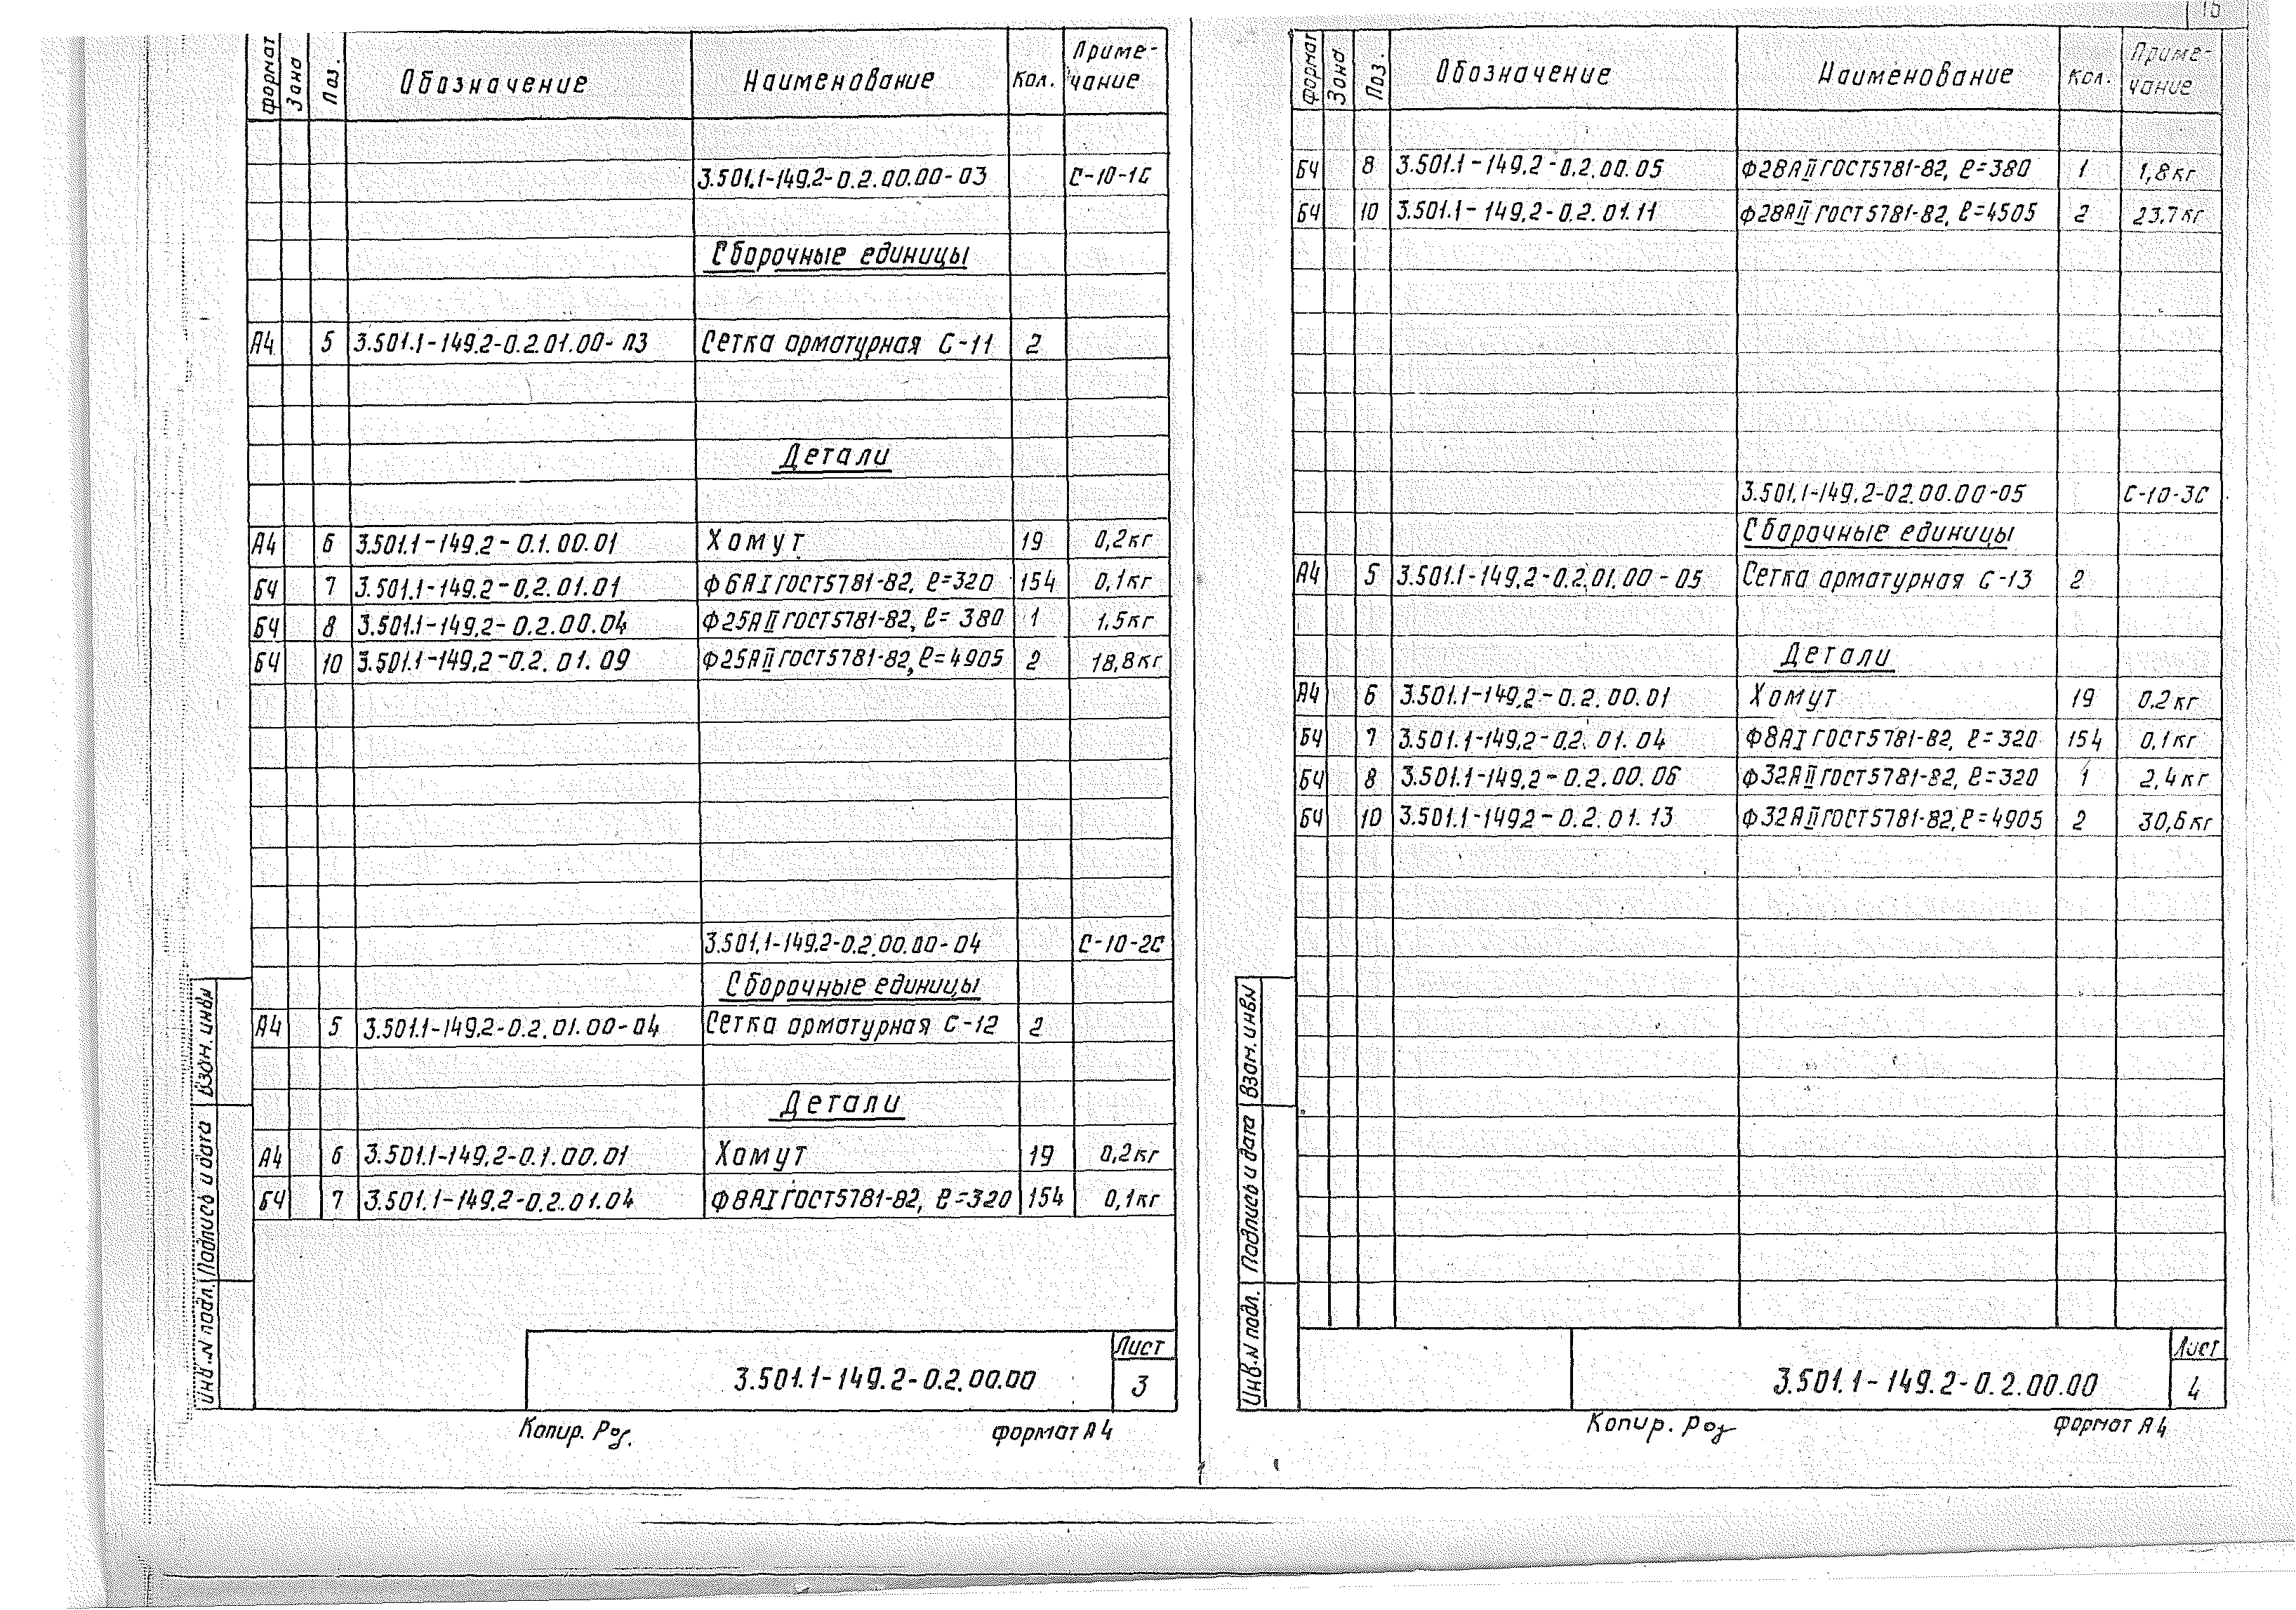 Формат Зона Поз. Обозначение Наименование Кол. Приме-
чание
3.501.1-149.2-0.2.00.00-03 С-10-1С
Сборочные единицы
А4 5 3.501.1-149.2-0.2.01.00-03 Сетка арматурная С-11 2
Детали
А4 6 3.501.1-149.2-0.1.00.01 Хомут 19 0,2кг
БЧ 7 3.501.1-149.2-0.2.01.01 Ф6АI ГОСТ5781-82, ℓ=320 154 0,1кг
БЧ 8 3.501.1-149.2-0.2.00.04 Ф25АII ГОСТ5781-82, ℓ=380 1 1,5кг
БЧ 10 3.501.1-149.2-0.2.01.09 Ф25АII ГОСТ5781-82, ℓ=4905 2 18,8кг
3.501.1-149.2-0.2.00.00-04 С-10-2С
Сборочные единицы
А4 5 3.501.1-149.2-0.2.01.00-04 Сетка арматурная С-12 2
Детали
А4 6 3.501.1-149.2-0.1.00.01 Хомут 19 0,2кг
БЧ 7 3.501.1-149.2-0.2.01.04 Ф8АI ГОСТ5781-82, ℓ=320 154 0,1кг
Взам. инв.N
Подпись и дата
Инв.N подл.
3.501.1-149.2-0.2.00.00
Лист
3
Копир. Роз.
формат А4
Формат Зона Поз. Обозначение Наименование Кол. Приме-
чание
БЧ 8 3.501.1-149.2-0.2.00.05 Ф28АII ГОСТ5781-82, ℓ=380 1 1,8кг
БЧ 10 3.501.1-149.2-0.2.01.11 Ф28АII ГОСТ5781-82, ℓ=4505 2 23,7кг
3.501.1-149.2-02.00.00-05 С-10-3С
Сборочные единицы
А4 5 3.501.1-149.2-0.2.01.00-05 Сетка арматурная С-13 2
Детали
А4 6 3.501.1-149.2-0.2.00.01 Хомут 19 0.2кг
БЧ 7 3.501.1-149.2-0.2.01.04 Ф8АI ГОСТ5781-82, ℓ=320 154 0,1кг
БЧ 8 3.501.1-149.2-0.2.00.06 Ф32АII ГОСТ5781-82, ℓ=320 1 2,4кг
БЧ 10 3.501.1-1492-0.2.01.13 Ф32АII ГОСТ5781-82, ℓ=4905 2 30,6кг
Взам. инв.N
Подпись и дата
Инв.N подл.
3.501.1-149.2-0.2.00.00
Лист
4
Копир. Роз
формат А4